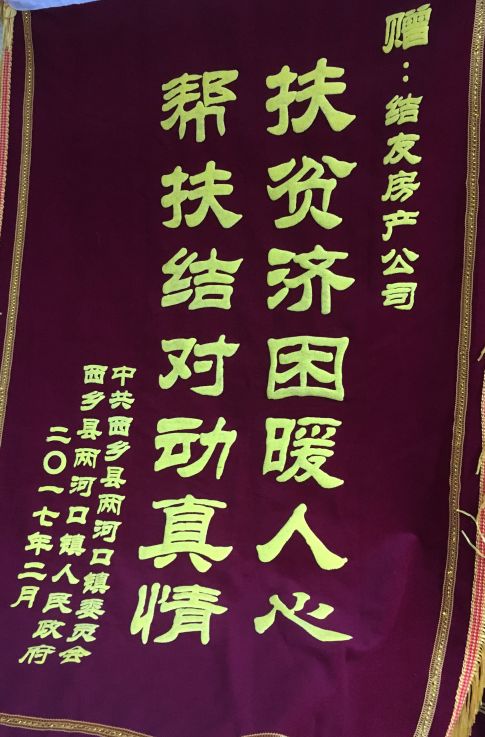 赠：结友房产公司
扶贫济困暖人心
帮扶结对动真情
中共西乡县两河口镇委员会
西乡县两河口镇人民政府
二〇一七年二月